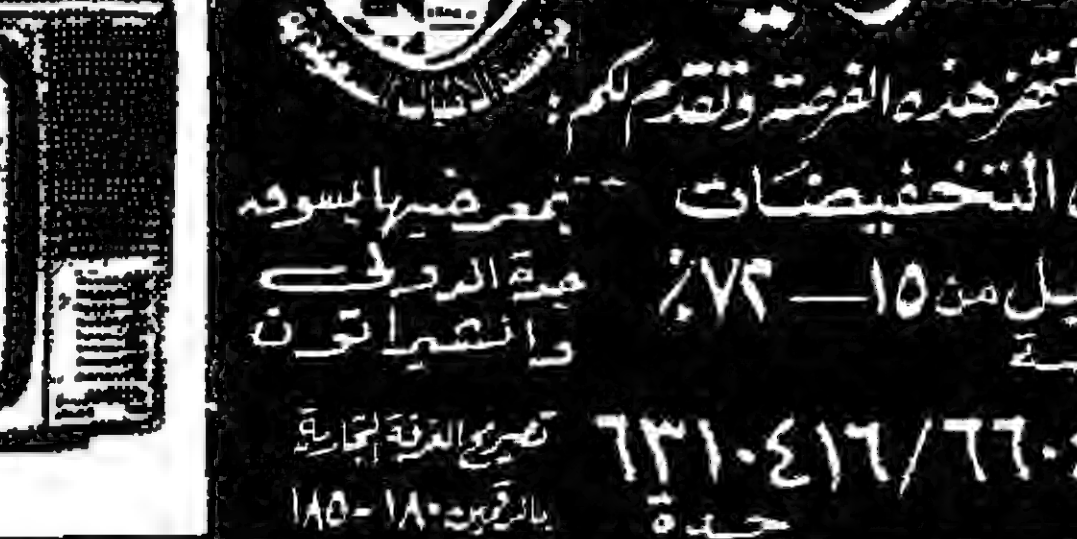 هذه الفرصة وتقدم لكم:
التخفيضات
من ١٥ — ٧٣٪
بمعرضيها بسوق
جدة الدولي
وانشيراتون
٦٣١٠٤١٦/٦٦٠
جدة
تصريح الغرفة التجارية
بالرقمين ١٨٠ - ١٨٥